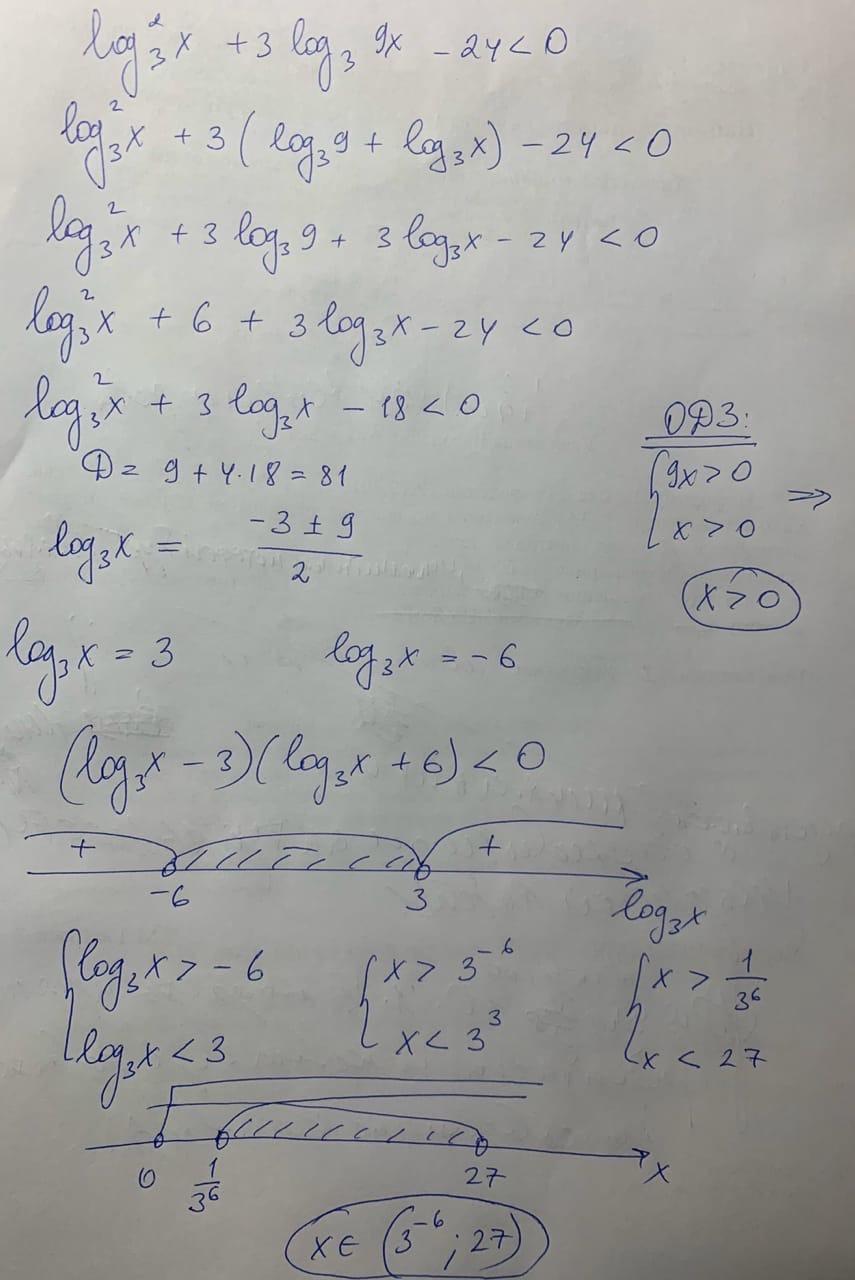 log₃²x + 3 log₃ 9x - 24 < 0
log₃²x + 3 ( log₃9 + log₃x) - 24 < 0
log₃²x + 3 log₃ 9 + 3 log₃x - 24 < 0
log₃²x + 6 + 3 log₃x - 24 < 0
log₃²x + 3 log₃x - 18 < 0
D = 9 + 4·18 = 81
log₃x = (-3 ± 9)/2
ОДЗ:
{ 9x > 0
{ x > 0 ⇒
x > 0
log₃x = 3 log₃x = -6
(log₃x - 3)(log₃x + 6) < 0
+ - +
-6 3 log₃x
{ log₃x > -6 { x > 3⁻⁶ { x > 1/3⁶
{ log₃x < 3 { x < 3³ { x < 27
0 1/3⁶ 27 x
x ∈ (3⁻⁶; 27)